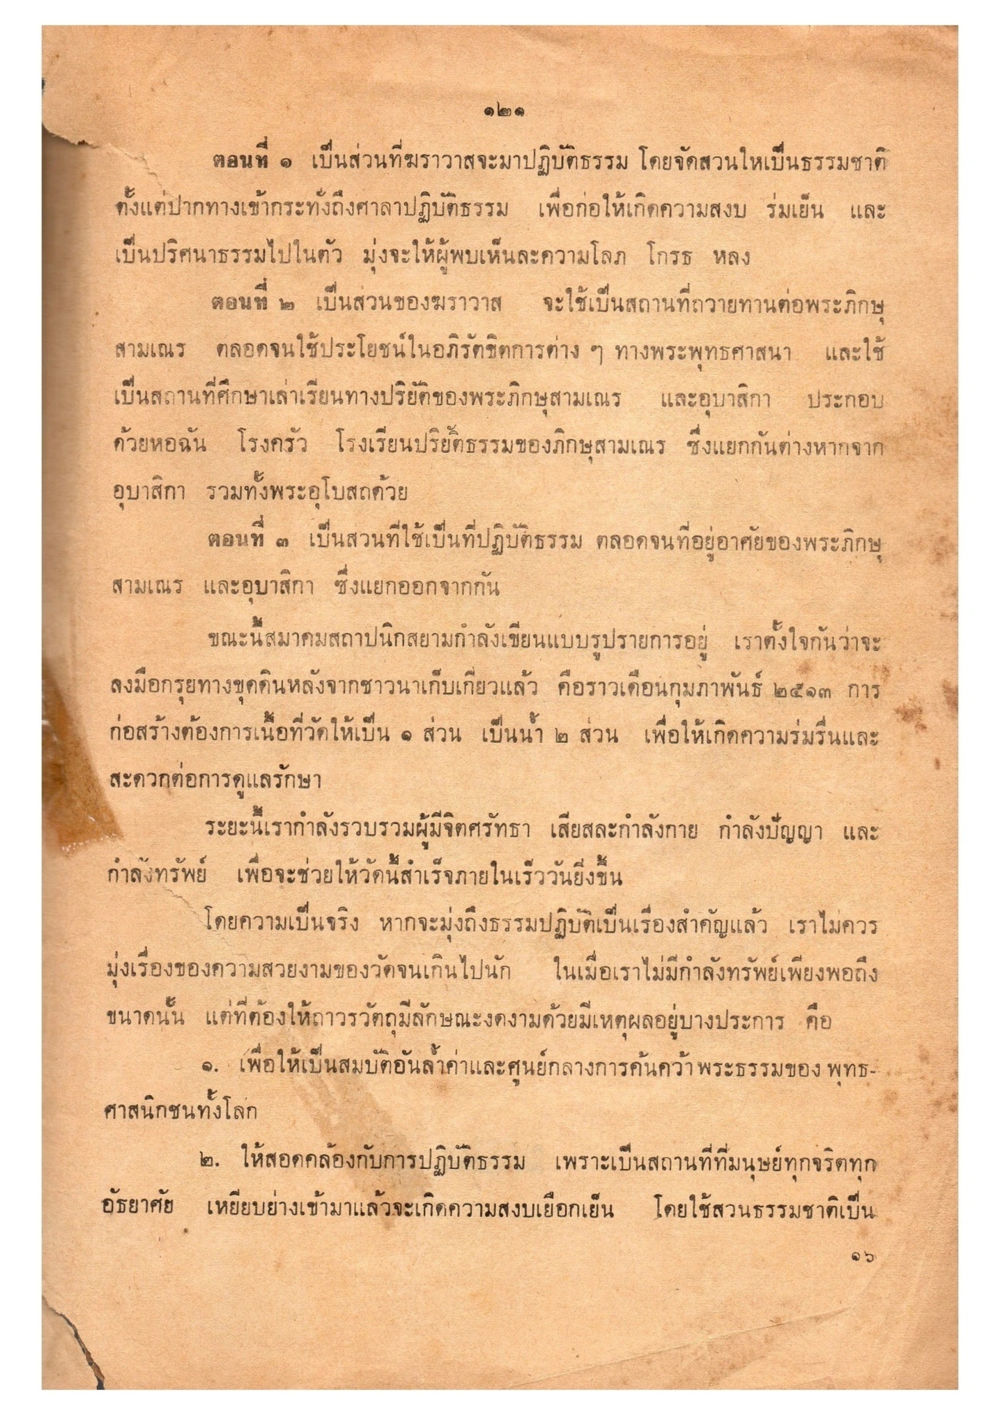 ๑๒๑
ตอนที่ ๑ เป็นส่วนที่ฆราวาสจะมาปฏิบัติธรรม โดยจัดสวนให้เป็นธรรมชาติ
ตั้งแต่ปากทางเข้ากระทั่งถึงศาลาปฏิบัติธรรม เพื่อก่อให้เกิดความสงบ ร่มเย็น และ
เป็นปริศนาธรรมไปในตัว มุ่งจะให้ผู้พบเห็นละความโลภ โกรธ หลง
ตอนที่ ๒ เป็นส่วนของฆราวาส จะใช้เป็นสถานที่ถวายทานต่อพระภิกษุ
สามเณร ตลอดจนใช้ประโยชน์ในอภิรัตขิตการต่าง ๆ ทางพระพุทธศาสนา และใช้
เป็นสถานที่ศึกษาเล่าเรียนทางปริยัติของพระภิกษุสามเณร และอุบาสิกา ประกอบ
ด้วยหอฉัน โรงครัว โรงเรียนปริยัติธรรมของภิกษุสามเณร ซึ่งแยกกันต่างหากจาก
อุบาสิกา รวมทั้งพระอุโบสถด้วย
ตอนที่ ๓ เป็นสวนที่ใช้เป็นที่ปฏิบัติธรรม ตลอดจนที่อยู่อาศัยของพระภิกษุ
สามเณร และอุบาสิกา ซึ่งแยกออกจากกัน
ขณะนี้สมาคมสถาปนิกสยามกำลังเขียนแบบรูปรายการอยู่ เราตั้งใจกันว่าจะ
ลงมือกรุยทางขุดดินหลังจากชาวนาเก็บเกี่ยวแล้ว คือราวเดือนกุมภาพันธ์ ๒๕๑๓ การ
ก่อสร้างต้องการเนื้อที่วัดให้เป็น ๑ ส่วน เป็นน้ำ ๒ ส่วน เพื่อให้เกิดความร่มรื่นและ
สะดวกต่อการดูแลรักษา
ระยะนี้เรากำลังรวบรวมผู้มีจิตศรัทธา เสียสละกำลังกาย กำลังปัญญา และ
กำลังทรัพย์ เพื่อจะช่วยให้วัดนี้สำเร็จภายในเร็ววันยิ่งขึ้น
โดยความเป็นจริง หากจะมุ่งถึงธรรมปฏิบัติเป็นเรื่องสำคัญแล้ว เราไม่ควร
มุ่งเรื่องของความสวยงามของวัดจนเกินไปนัก ในเมื่อเราไม่มีกำลังทรัพย์เพียงพอถึง
ขนาดนั้น แต่ที่ต้องให้ถาวรวัตถุมีลักษณะงดงามด้วยมีเหตุผลอยู่บางประการ คือ
๑. เพื่อให้เป็นสมบัติอันล้ำค่าและศูนย์กลางการค้นคว้าพระธรรมของ พุทธ-
ศาสนิกชนทั้งโลก
๒. ให้สอดคล้องกับการปฏิบัติธรรม เพราะเป็นสถานที่ที่มนุษย์ทุกจริตทุก
อัธยาศัย เหยียบย่างเข้ามาแล้วจะเกิดความสงบเยือกเย็น โดยใช้สวนธรรมชาติเป็น
๑๖